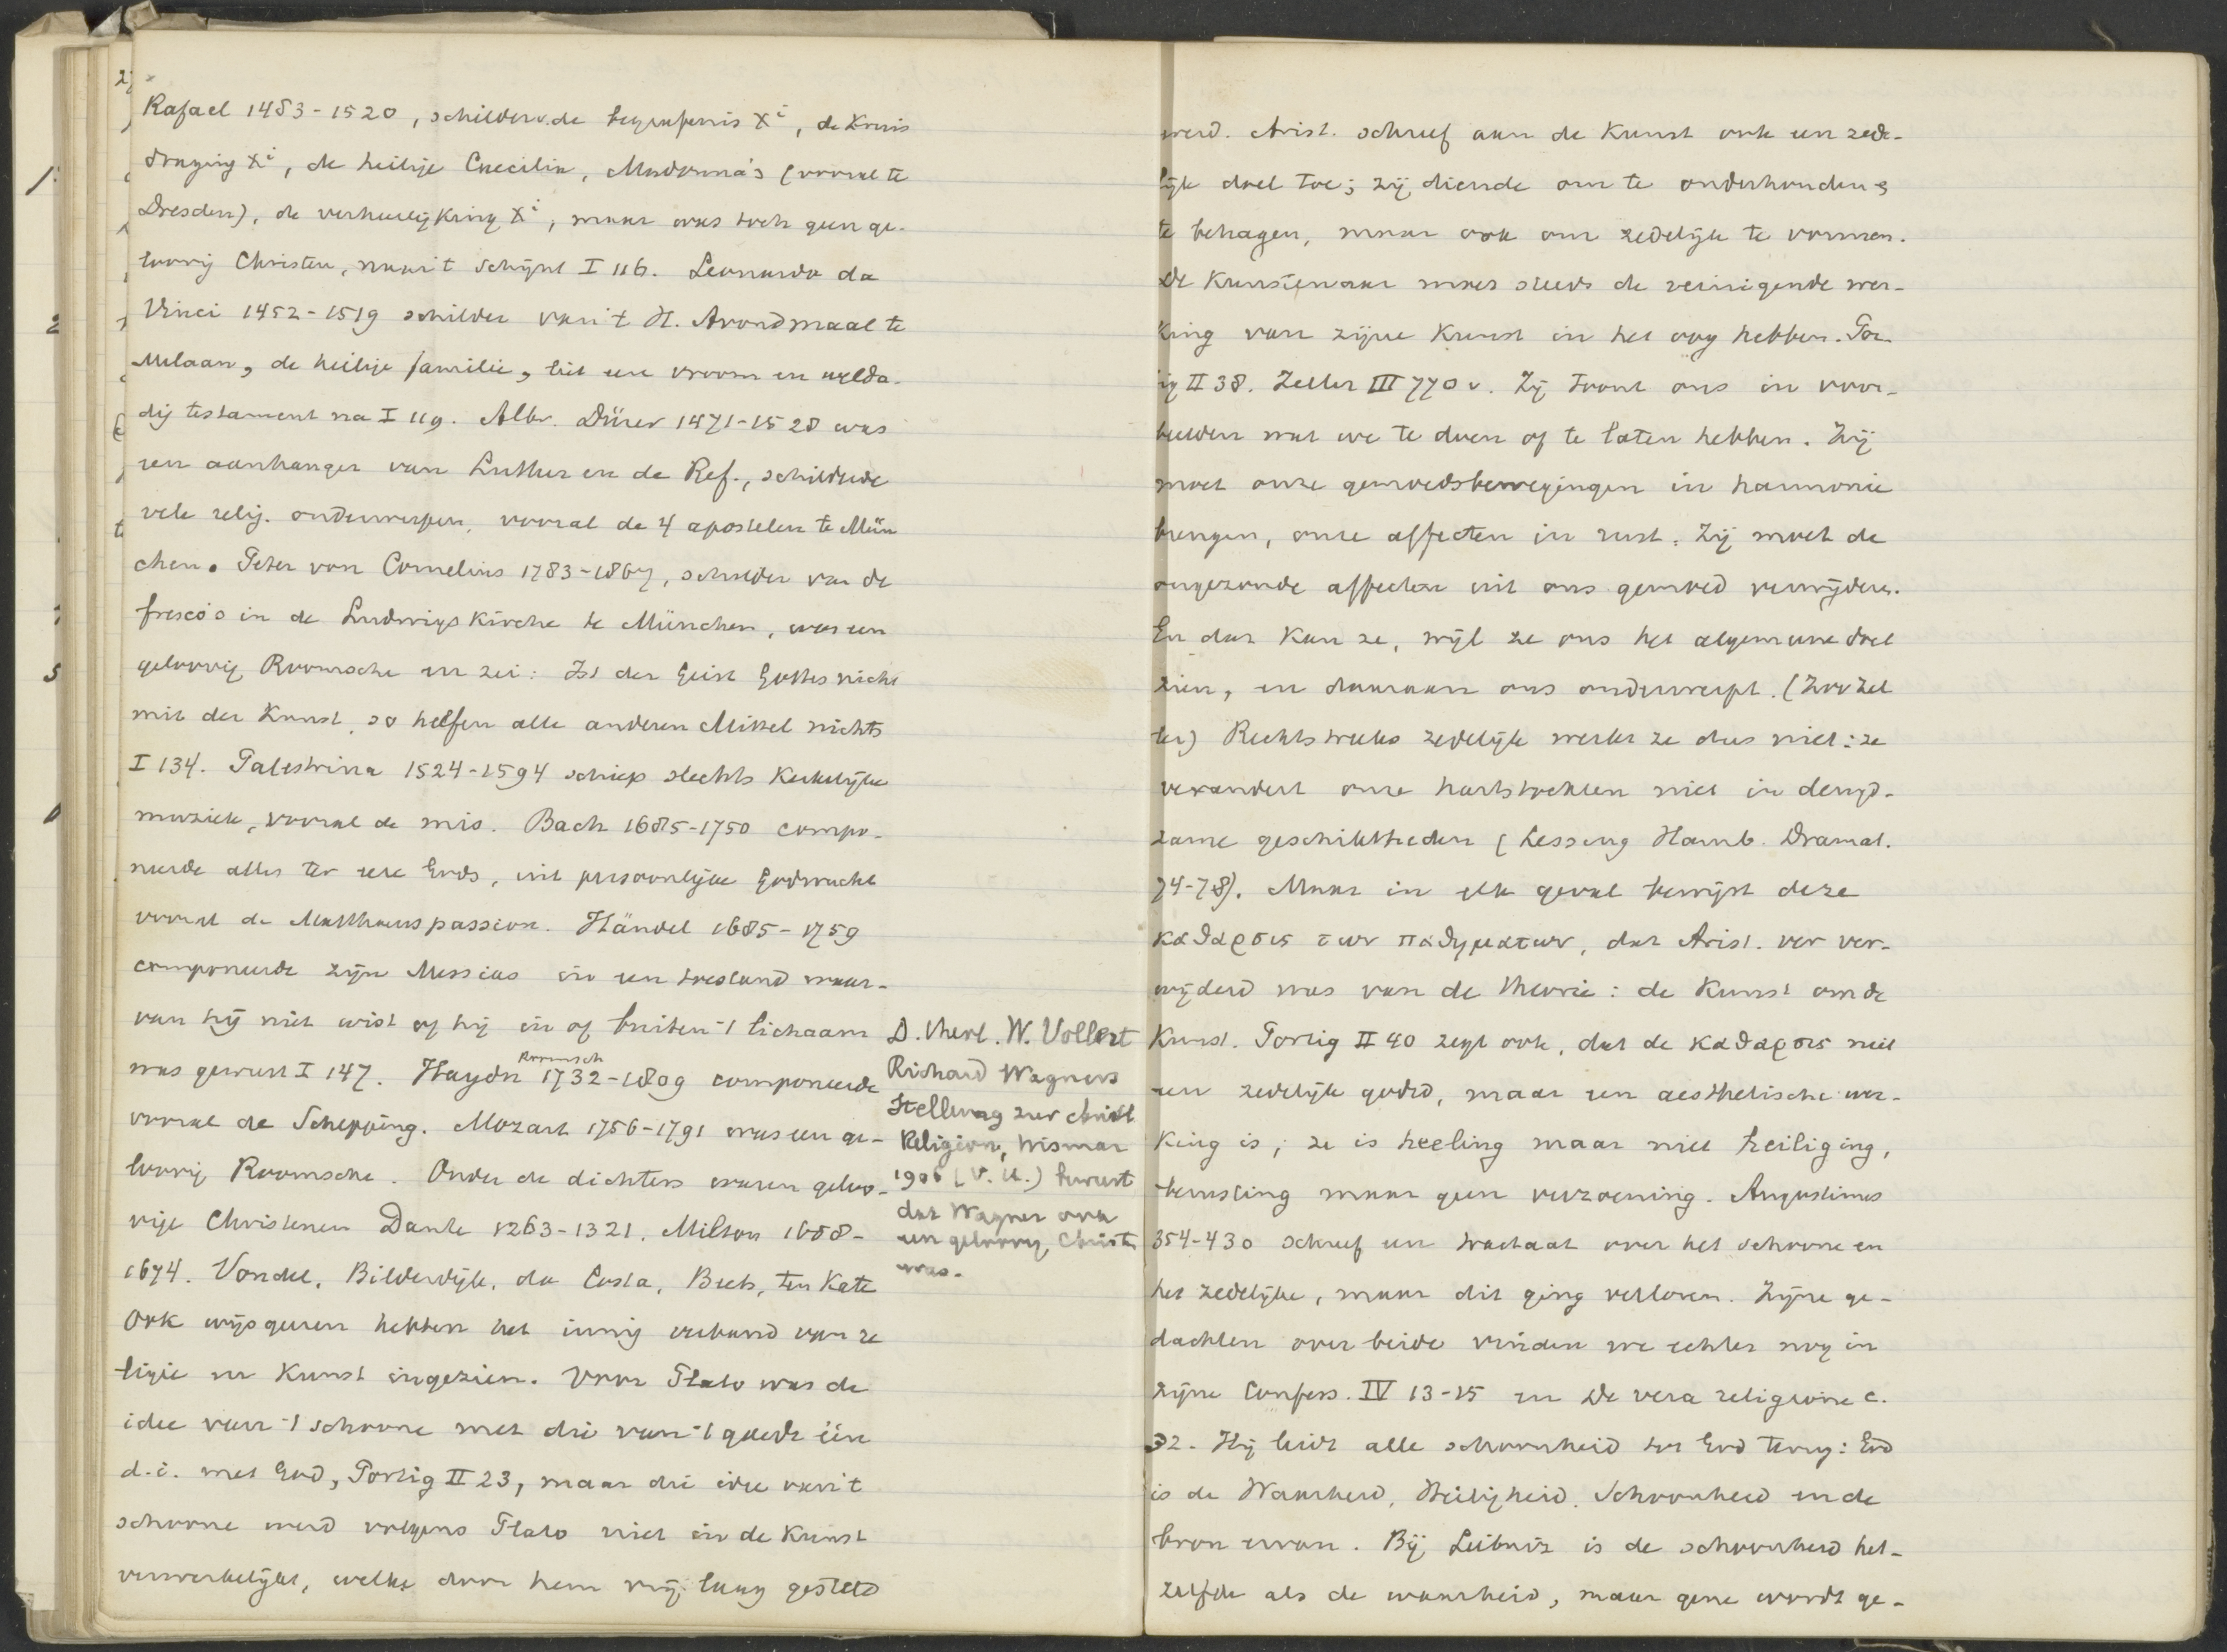 Rafael 1483-1520, schilder v. de begrafenis Xi, de kruis
draging Xi, de heilige Caecilia, Madonna's (vooral te
Dresden), de verheerlijking Xi, maar was toch geen ge-
loovig Christen, naar 't schijnt I 116. Leonardo da
Vinci 1452-1519 schilder van 't H. Avondmaal te
Milaan, de heilige familie, liet een vroom en welda-
dig testament na I 119. Albr. Dürer 1471-1528 was
een aanhanger van Luther en de Ref., schilderde
vele relig. onderwerpen, vooral de 4 apostelen te Mün
chen. Peter von Cornelius 1783-1867, schilder van de
fresco's in de Ludwigskirche te München, was een
geloovig Roomsche en zei: Ist der Geist Gottes nicht
mit der Kunst, so helfen alle anderen Mittel nichts
I 134. Palestrina 1524-1594 schiep slechts kerkelijke
muziek, vooral de mis. Bach 1685-1750 compo-
neerde alles ter eere Gods, uit persoonlijke Godvrucht
vooral de Matthaeuspassion. Händel 1685-1759
componeerde zijn Messias in een toestand waar-
van hij niet wist of hij in of buiten 't lichaam
was geweest I 147. Haydn 1732-1809 componeerde
Roomsch
vooral de Schepping. Mozart 1756-1791 was een ge-
loovig Roomsche. Onder de dichters waren geloo-
vige Christenen Dante 1263-1321, Milton 1608-
1674. Vondel, Bilderdijk, da Costa, Beets, ten Kate
Ook wijsgeeren hebben het innig verband van re
ligie en kunst ingezien. Voor Plato was de
idee van 't schoone met die van 't goede één
d.i. met God, Portig II 23, maar die idee van 't
schoone werd volgens Plato niet in de kunst
verwerkelijkt, welke door hem vrij laag gesteld
D. theol. W. Vollert
Richard Wagners
Stellung zur christl
Religion, Wismar
1906 (V. U.) beweert
dat Wagner ook
een geloovig Christen
was.
werd. Arist. schreef aan de kunst ook een zede-
lijk doel toe; zij diende om te onderhouden,
te behagen, maar ook om zedelijk te vormen.
De kunstenaar moet steeds de reinigende wer-
king van zijne kunst in het oog hebben. Por-
tig II 38. Zeller III 770 v. Zij toont ons in voor-
beelden wat we te doen of te laten hebben. Zij
moet onze gemoedsbewegingen in harmonie
brengen, onze affecten in rust. Zij moet de
ongezonde affecten uit ons gemoed verwijderen.
En dat kan ze, wijl ze ons het algemeene doet
zien, en daaraan ons onderwerpt. (Zoo Zel
ler) Rechtstreeks zedelijk werkt ze dus niet: ze
verandert onze hartstochten niet in deugd-
zame geschiktheden (Lessing Hamb. Dramat.
74-78). Maar in elk geval bewijst deze
καθαρσις των παθηματων, dat Arist. ver ver-
wijderd was van de theorie: de kunst om de
kunst. Portig II 40 zegt ook, dat de καθαρσις niet
een zedelijk goed, maar een aesthetische wer-
king is; ze is heeling maar niet heiliging,
berusting maar geen verzoening. Augustinus
354-430 schreef een tractaat over het schoone en
het zedelijke, maar dit ging verloren. Zijne ge-
dachten over beide vinden we echter nog in
zijne Confess. IV 13-15 en De vera religione c.
32. Hij leidt alle schoonheid tot God terug: God
is de Waarheid, Heiligheid, Schoonheid en de
bron ervan. Bij Leibniz is de schoonheid het-
zelfde als de waarheid, maar gene wordt ge-